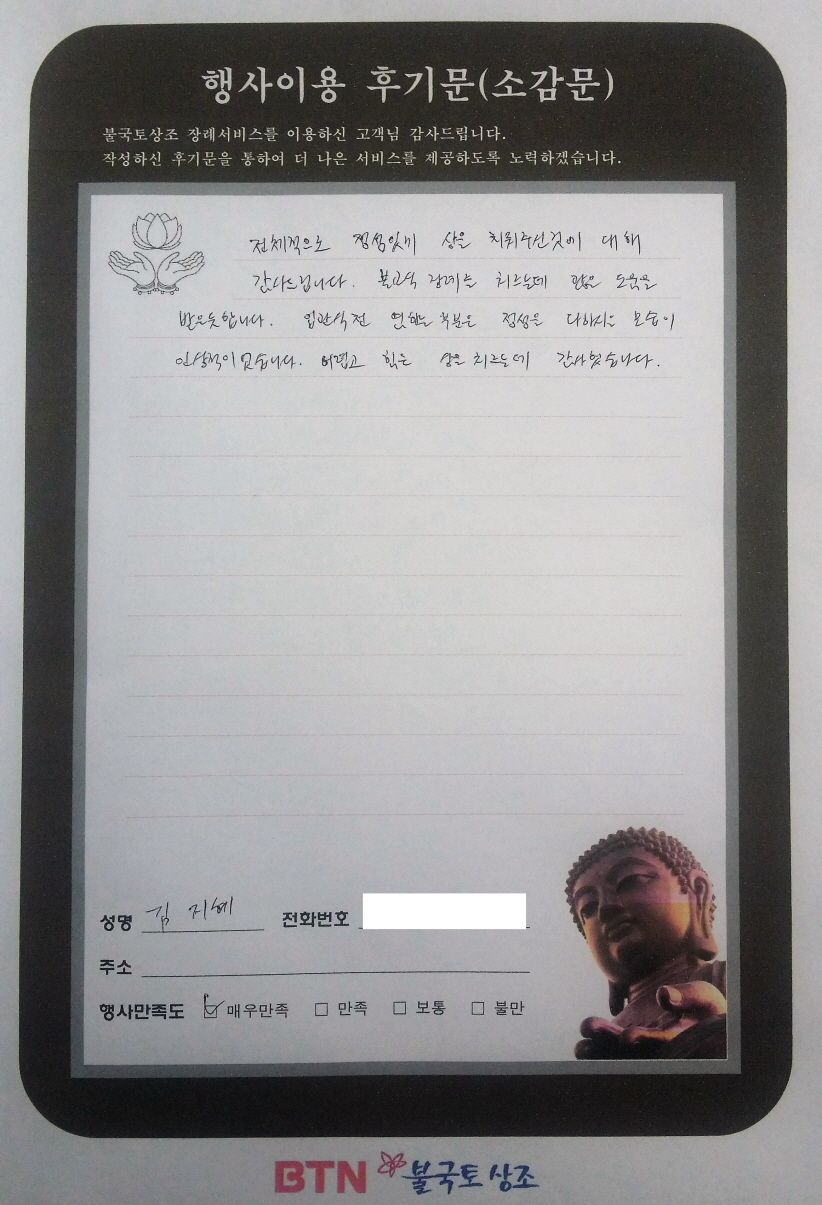 행사이용 후기문(소감문)
불국토상조 장례서비스를 이용하신 고객님 감사드립니다.
작성하신 후기문을 통하여 더 나은 서비스를 제공하도록 노력하겠습니다.
전체적으로 정성있게 상을 치뤄주신것에 대해
감사드립니다. 불교식 장례를 치르는데 많은 도움을
받은듯합니다. 입관식전 부분은 정성을 다하시는 모습이
인상적이었습니다. 어렵고 힘든 상을 치르는데 감사했습니다.
성명 김지혜 전화번호
주소
행사만족도 매우만족 만족 보통 불만
BTN 불국토상조